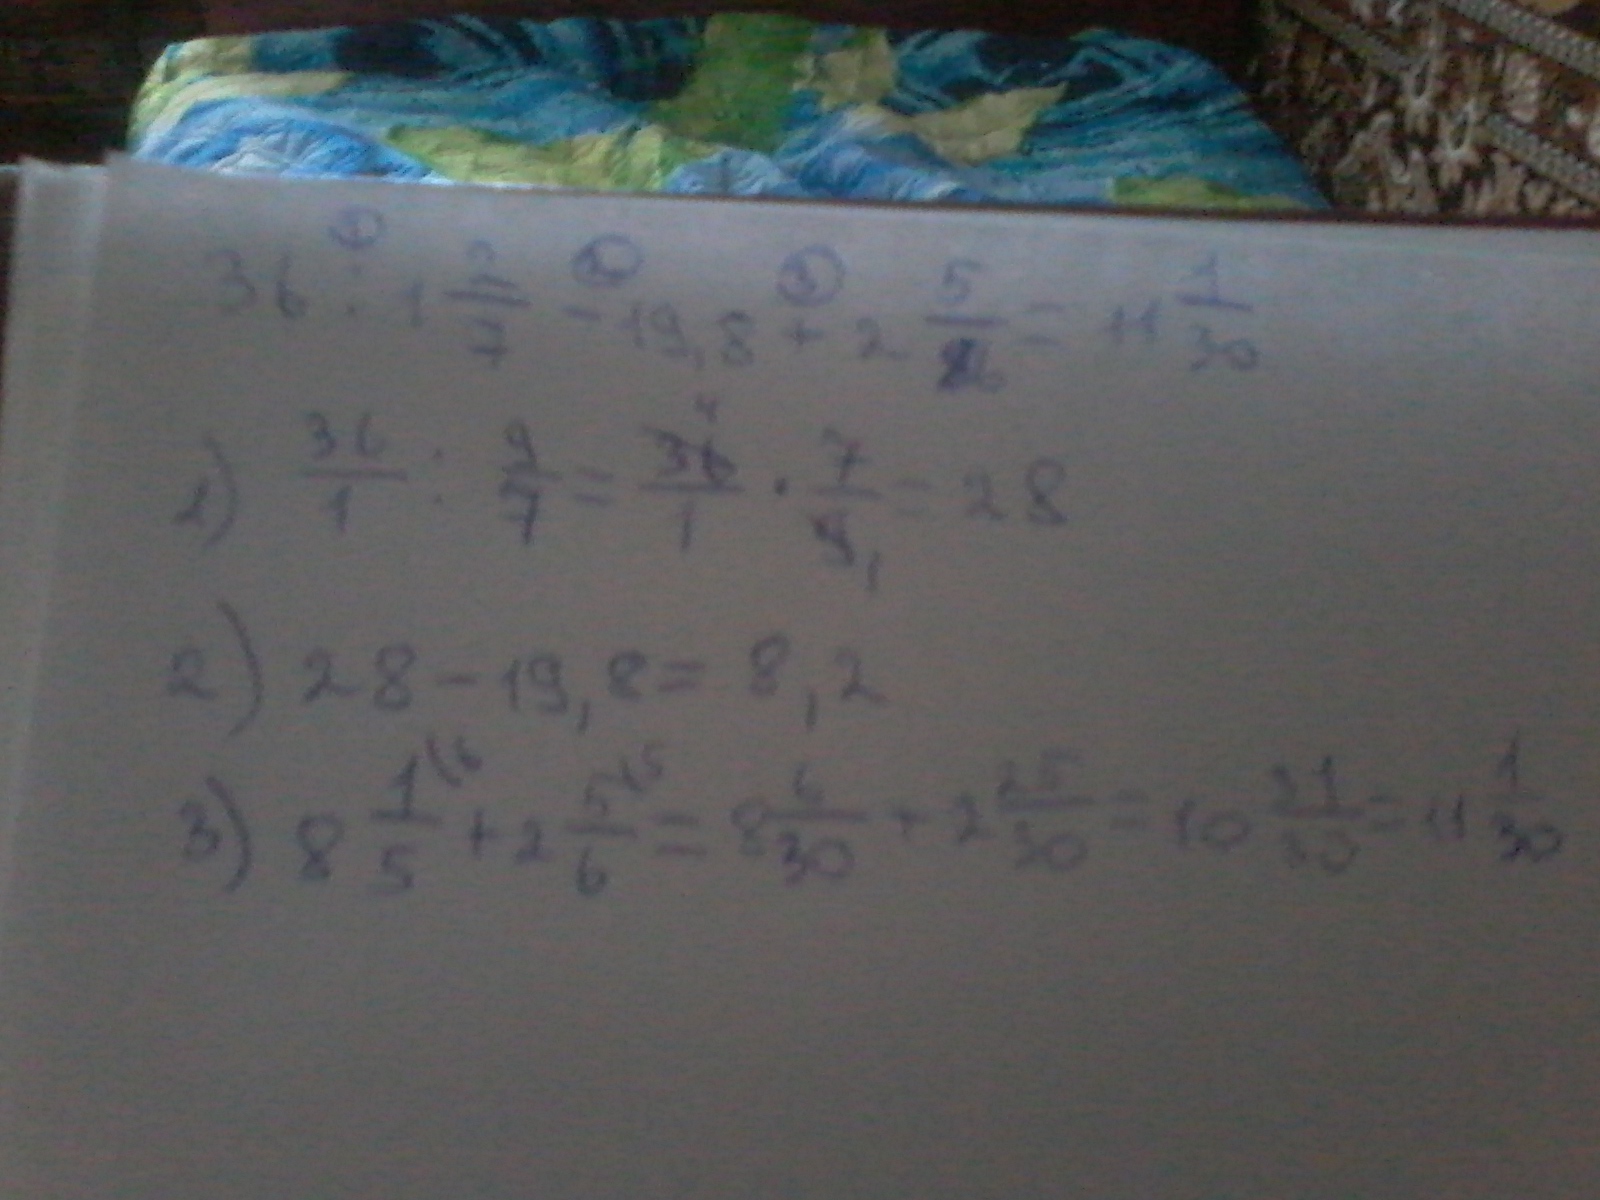 36 : 1 2/7 - 19,8 + 2 5/6 = 11 1/30
1) 36/1 : 9/7 = 36/1 · 7/9 = 28
2) 28 - 19,8 = 8,2
3) 8 1/5 + 2 5/6 = 8 6/30 + 2 25/30 = 10 31/30 = 11 1/30